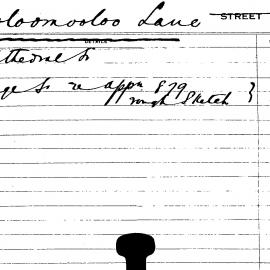 oloomooloo Lane STREET
DETAILS
thedral St
ge St re appn 879
rough Sketch }